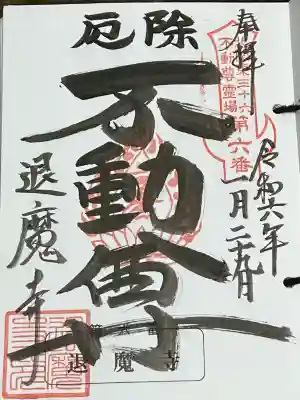 奉拝
東三十六
不動尊霊場
第六番
令和六年
一月二十九日
厄除
不動尊
退魔寺
退魔寺